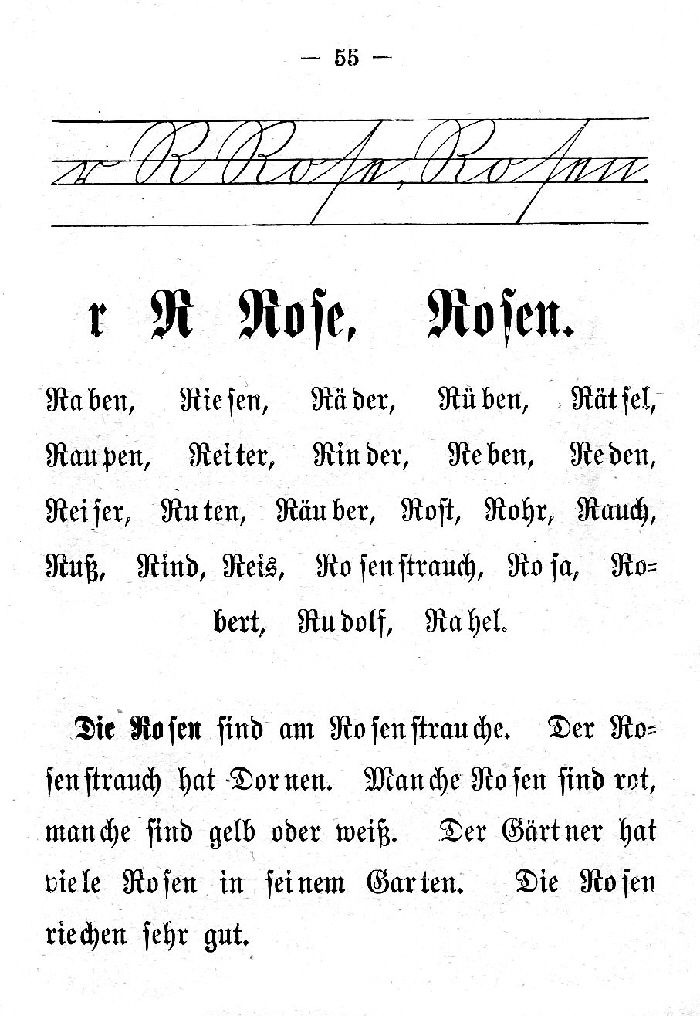 — 55 —
r R Rose, Rosen.
r R Rose, Rosen.
Raben, Riesen, Räder, Rüben, Rätsel,
Raupen, Reiter, Rinder, Reben, Reden,
Reiser, Ruten, Räuber, Rost, Rohr, Rauch,
Ruß, Rind, Reis, Rosenstrauch, Rosa, Ro=
bert, Rudolf, Rahel.
Die Rosen sind am Rosenstrauche. Der Ro=
senstrauch hat Dornen. Manche Rosen sind rot,
manche sind gelb oder weiß. Der Gärtner hat
viele Rosen in seinem Garten. Die Rosen
riechen sehr gut.